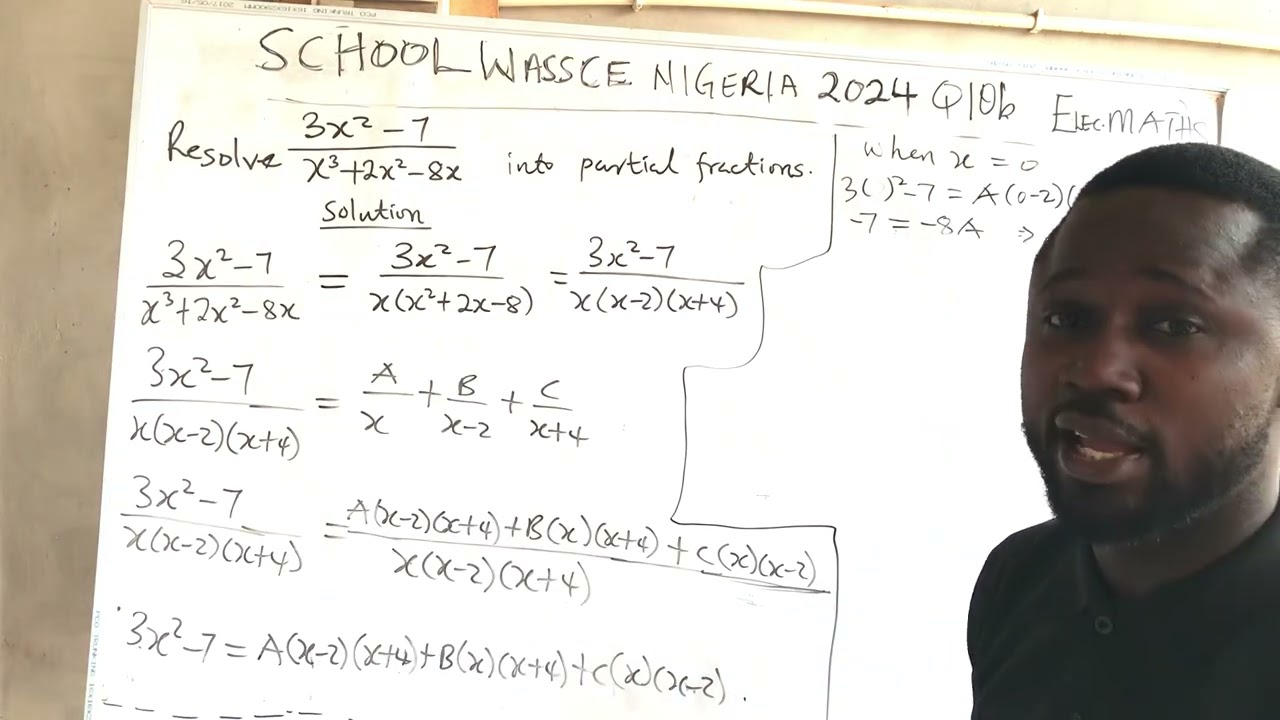 SCHOOL WASSCE NIGERIA 2024 Q10b ELEC.MATHS
Resolve (3x²-7)/(x³+2x²-8x) into partial fractions.
Solution
(3x²-7)/(x³+2x²-8x) = (3x²-7)/(x(x²+2x-8)) = (3x²-7)/(x(x-2)(x+4))
(3x²-7)/(x(x-2)(x+4)) = A/x + B/(x-2) + C/(x+4)
(3x²-7)/(x(x-2)(x+4)) = (A(x-2)(x+4)+B(x)(x+4)+C(x)(x-2))/(x(x-2)(x+4))
3x²-7 = A(x-2)(x+4)+B(x)(x+4)+C(x)(x-2).
when x = 0
3( )²-7 = A(0-2)(
-7 = -8A ⇒